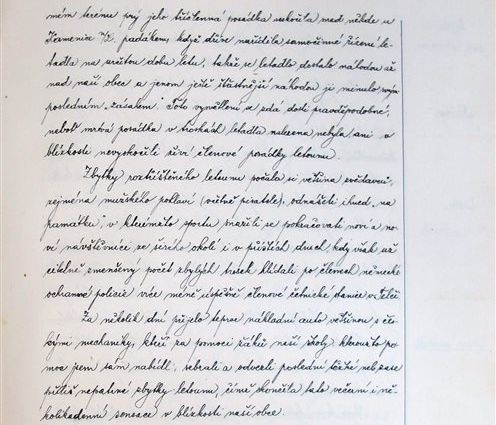 mém terénu prý jeho tříčlenná posádka uskočila nad někde u
Kamenice n/L. padákem, když dříve nařídila samočinné řízení le-
tadla na určitou dobu letu, takže se letadlo dostalo náhodou až
nad naši obec a jenom ještě šťastnější náhodou ji minulo svým
posledním „zásahem“. Toto vysvětlení se zdá dosti pravděpodobné,
neboť mrtvá posádka v troskách letadla nalezena nebyla ani v
blízkosti nevyskočili živí členové posádky letounu.
Zbytky roztříštěného letounu počala si většina zvědavců,
zejména mužského pohlaví (včetně pisatele), odnášeti ihned „na
památku“, v kterémžto sportu snažili se pokračovati noví a no-
ví návštěvníci ze širého okolí i v příštích dnech, kdy však už
citelně zmenšený počet zbylých trosek hlídali po členech německé
ochranné policie více méně úspěšně členové četnické stanice v Telči.
Za několik dní přijelo teprve nákladní auto většinou s čes-
kými mechaniky, kteří za pomoci žáků naší školy, kteroužto po-
moc jsem sám nabídl, sebrali a odvezli poslední těžké neb zase
příliš nepatrné zbytky letounu, čímž skončila tato večerní i ně-
kolikadenní sensace v blízkosti naší obce.